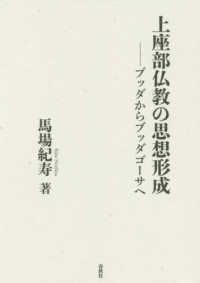 上座部仏教の思想形成
——ブッダからブッダゴーサへ
馬場紀寿 著
春秋社